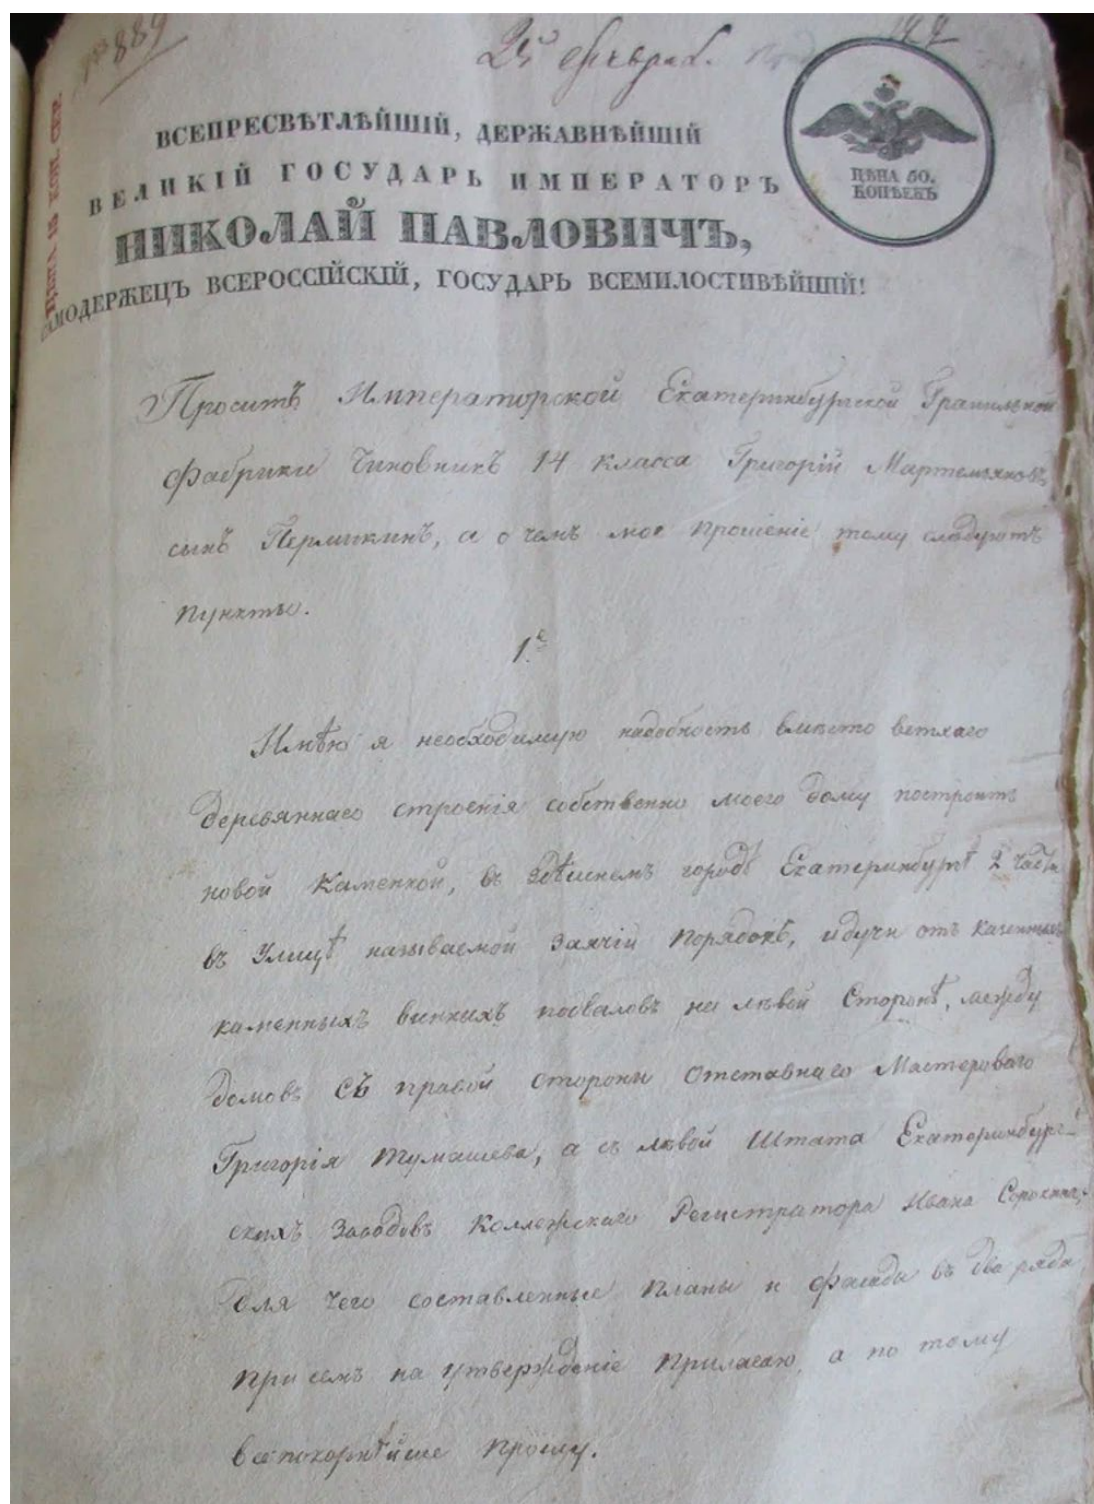 № 889
25 феврал.
ВСЕПРЕСВѢТЛѢЙШІЙ, ДЕРЖАВНѢЙШІЙ
ВЕЛИКІЙ ГОСУДАРЬ ИМПЕРАТОРЪ
НИКОЛАЙ ПАВЛОВИЧЪ,
САМОДЕРЖЕЦЪ ВСЕРОССІЙСКІЙ, ГОСУДАРЬ ВСЕМИЛОСТИВѢЙШІЙ!
ЦѢНА 50.
КОПѢЕКЪ
ЦѢНА 15 КОП. СЕР.
Проситъ Императорской Екатеринбургской Гранильной
Фабрики Чиновникъ 14 класса Григорій Мартемьяновъ
сынъ Пермикинъ, а о чемъ мое прошеніе тому слѣдуютъ
пункты.
1е
Имѣю я необходимую надобность вмѣсто ветхаго
деревяннаго строенія собственно моего дому построить
новой Каменной, въ здѣшнемъ городѣ Екатеринбургѣ 2 части
въ Улицѣ называемой Заячій Порядокъ, идучи отъ казенныхъ
каменныхъ винныхъ подваловъ на лѣвой Сторонѣ, между
домовъ съ правой стороны Отставнаго Мастероваго
Григорія Тумашева, а съ лѣвой Штата Екатеринбург-
скихъ Заводовъ Коллежскаго Регистратора Ивана Сорокина,
Для чего составленные планы и фасады въ два ряда
при семъ на утвержденіе Прилагаю, а по тому
всепокорнѣйше прошу.